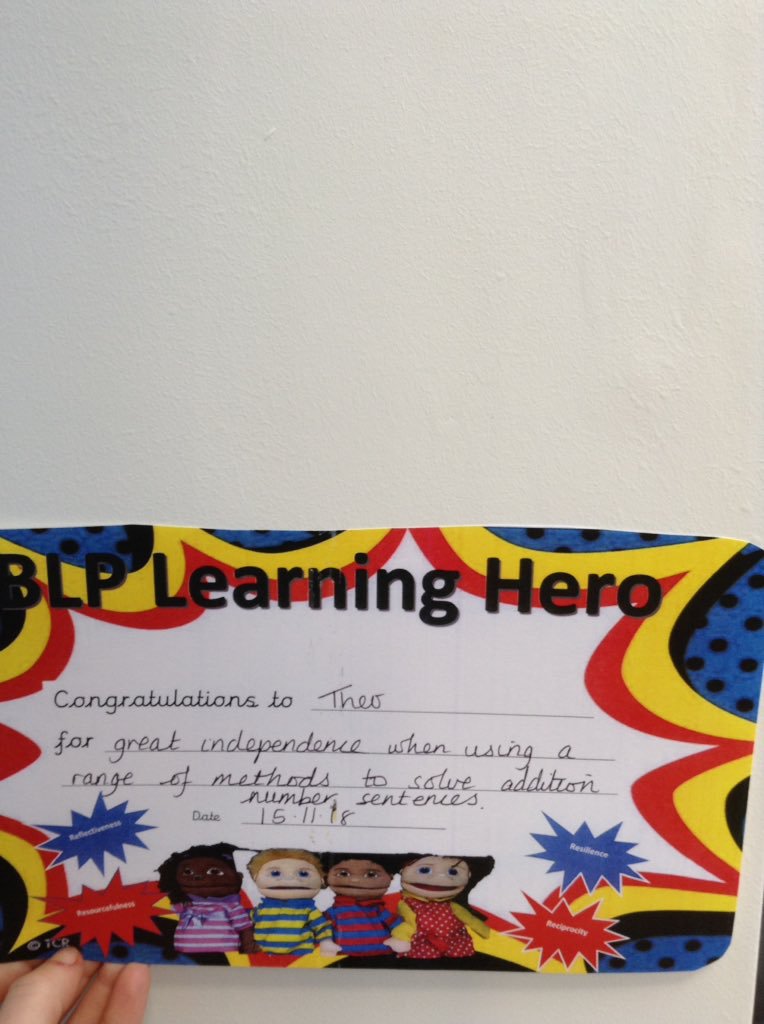 BLP Learning Hero
Congratulations to Theo
for great independence when using a
range of methods to solve addition
number sentences.
Date 15.11.18
Reflectiveness
Resilience
Resourcefulness
Reciprocity
© TCR